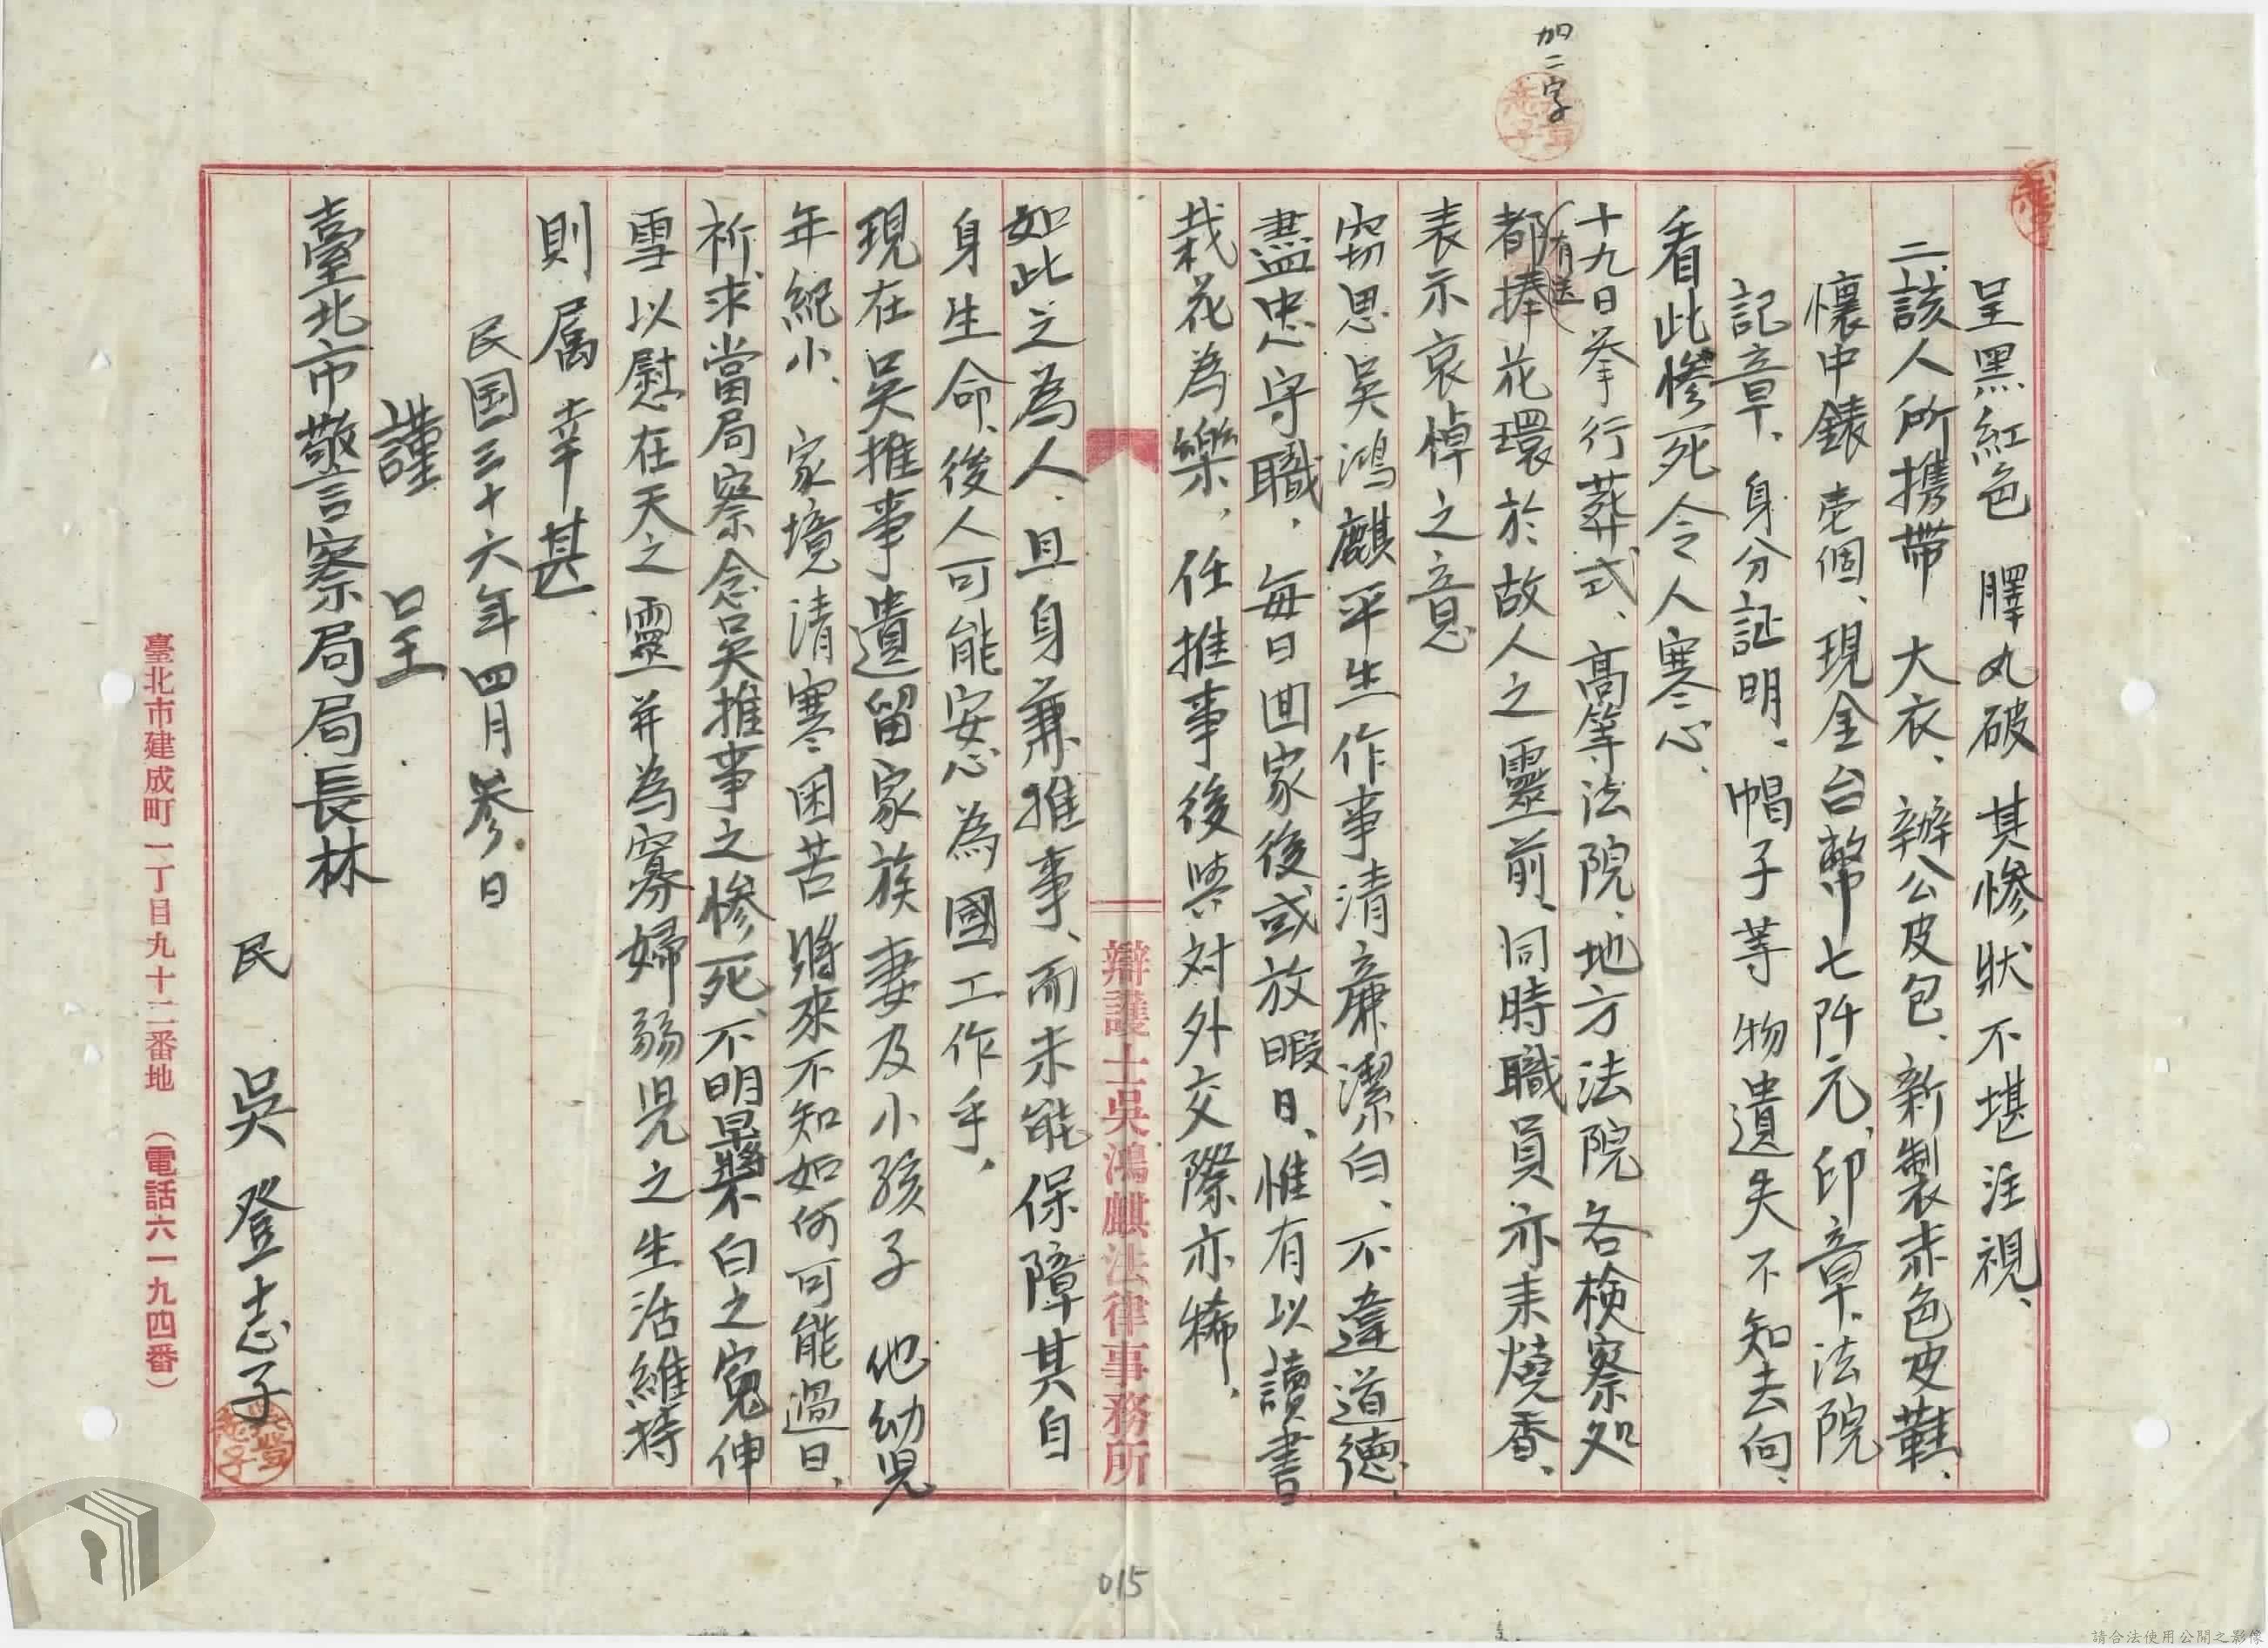 加二字
呈黑紅色　睪丸破　其慘狀不堪注視、
二、該人所携帶　大衣、辦公皮包、新製赤色皮鞋、
懷中錶壱個、現金台幣七阡元、印章、法院
記章、身分証明、帽子等物遺失不知去向、
看此慘死令人寒心、
十九日举行葬式、高等法院、地方法院各検察処
都（有送）捧花環於故人之靈前、同時職員亦来燒香、
表示哀悼之意
窃思吳鴻麒平生作事清廉潔白、不違道德、
盡忠守職、每日囬家後或放暇日、惟有以讀書
栽花為樂、任推事後與対外交際亦稀、
辯護士吳鴻麒法律事務所
如此之為人、且身兼推事、而未能保障其自
身生命、後人可能安心為國工作乎、
現在吳推事遺留家族妻及小孩子　他幼児
年紀小、家境清寒困苦將來不知如何可能過日、
祈求當局察念吳推事之慘死、不明不白之寃伸
雪以慰在天之靈并為寡婦弱児之生活維持
則属幸甚、
民国三十六年四月参日
謹　呈
臺北市警察局局長林
民　吳登志子
臺北市建成町一丁目九十二番地　（電話六一九四番）
015
請合法使用公開之影像